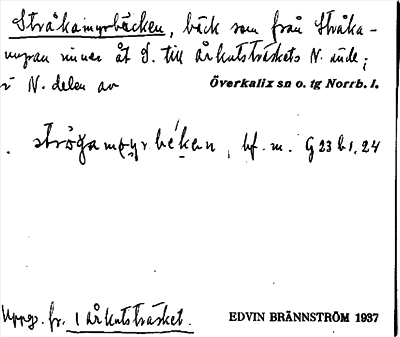 Stråkamyrbäcken, bäck som från Stråka-
myran rinner åt S. till Årkutsträskets N. ände;
i N. delen av Överkalix sn o. tg Norrb. l.
strögamǫyrbékan, bf. m. G 23 b 1, 24
Uppg. fr. 1 Årkutsträsket. EDVIN BRÄNNSTRÖM 1937